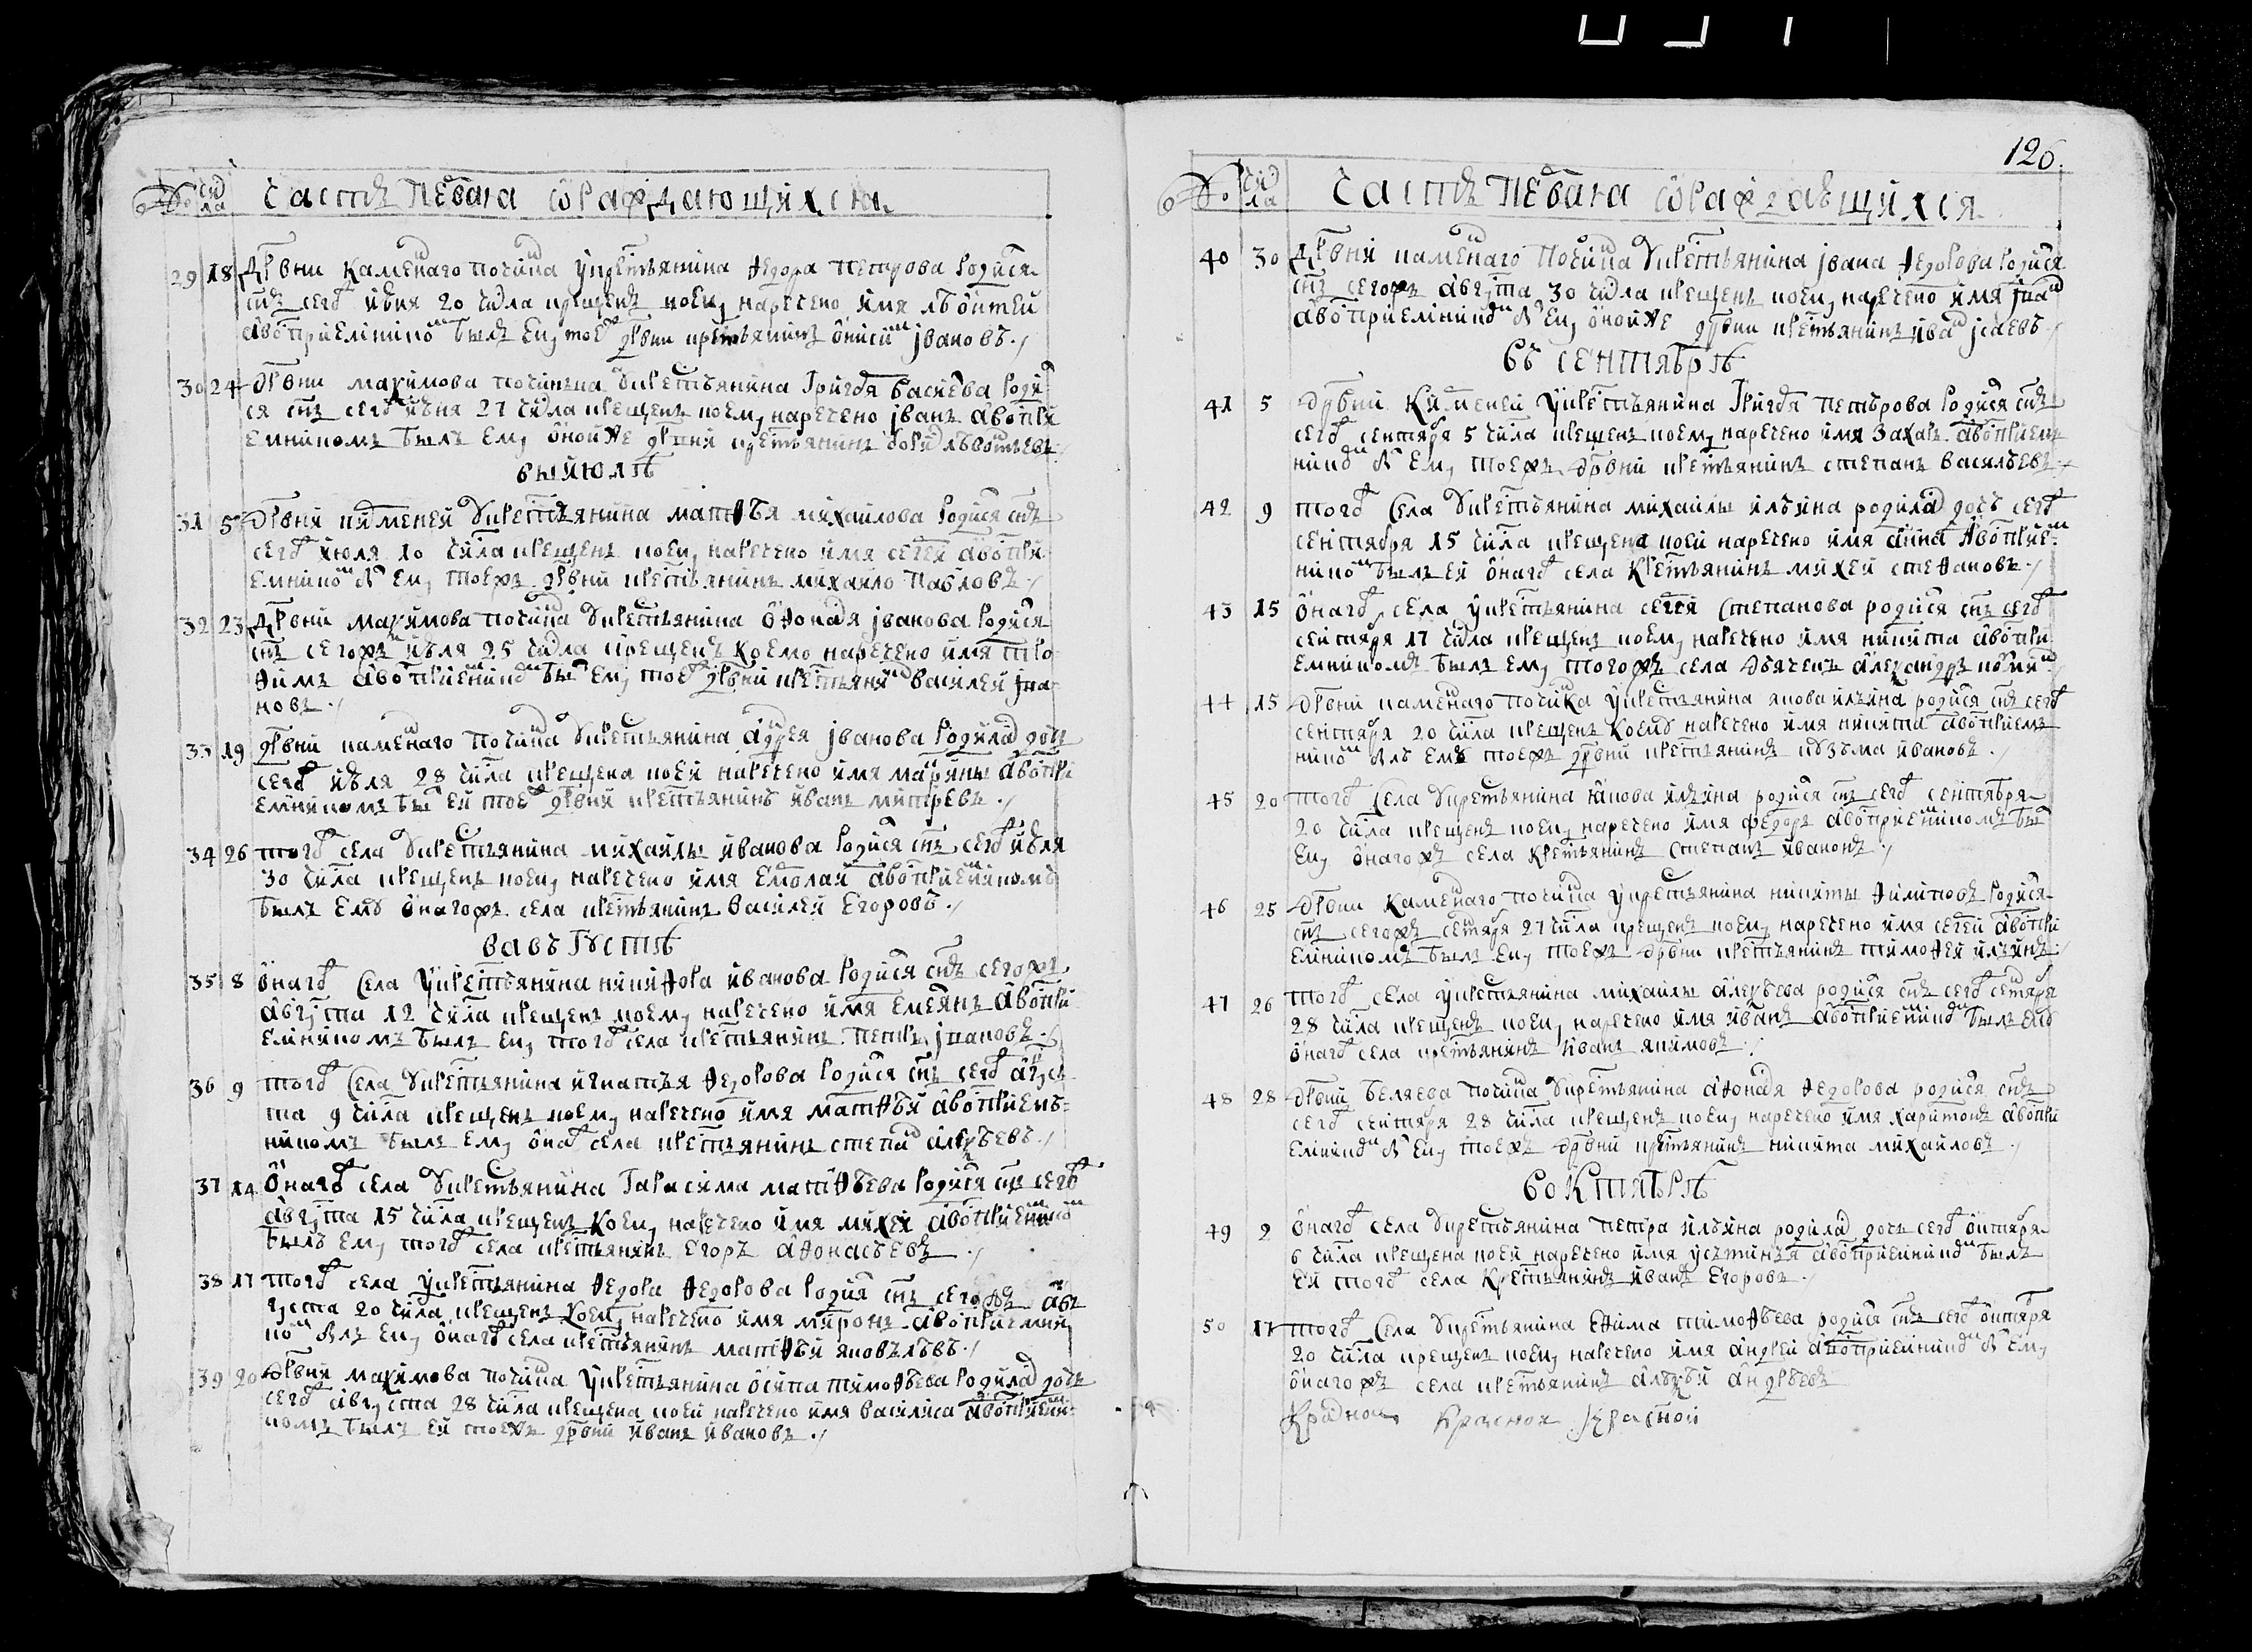 № числа Часть первая о раждающихся
29 18 Дрвни каменаго почина у крестьянина Федора Петрова родися
снъ сего июня 20 числа крещенъ коему наречено имя леонтей
а воприемником былъ ему тоеж дрвни крестьянинъ онисим Ивановъ
30 24 Дрвни Макимова починка у крестьянина Григоря Васиева роди
ся снъ сего июня 27 числа крещенъ коему наречено Iванъ а вопри
емникомъ былъ ему оной же дрвни крестьянинъ
въ июлѣ
31 5 Дрвни кименей у крестьянина матѳѣя михаилова родися снъ
сего июля 10 числа крещенъ коему наречено имя сегей а вопри
емником был ему тоежъ дрвни крестьянинъ михаило Павловъ
32 23 Дрвни макимова почина у крестьянина Офонася Iванова родися
снъ сегожъ июля 25 числа крещенъ коемо наречено имя тро
ѳимъ а воприемником бы ему тоеж дрвни крестьянин василей
новъ
33 19 дрвни каменаго почина у крестьянина адрея Iванова родилас дочь
сего июля 28 числа крещена коей наречено имя марины а вопри
емникомъ бы ей тоеж дрвни крестьянинъ иванъ митревъ
34 26 того села у крестьянина михаилы иванова родися снъ сего июля
30 числа крещенъ коему наречено имя емолаи а воприемникомъ
былъ ему онагожъ села крестьянинъ василей Егоровъ
в августѣ
35 8 онаго села у крестьянина никиѳора иванова родися снъ сегожъ
августа 12 числа крещенъ коему наречено имя емеянъ а вопри
емникомъ былъ ему того села крестьянинъ Петръ
36 9 того села у крестьянина игнатья ѳедорова родися снъ сего авгус
та 9 числа крещенъ коему наречено имя матѳѣй а воприемъ
никомъ былъ ему онаго села крестьянинъ степан алексѣевъ
37 14 Онаго села у крестьянина Гарасима матѳѣева родися снъ сего
августа 15 числа крещенъ коему наречено имя михеи а воприемником
былъ ему того села крестьянинъ Егоръ аѳонасьевъ
38 17 того села у крестьянина ѳедора ѳедорова родися снъ сегожъ ав
густа 20 числа крещенъ коему наречено имя миронъ а воприемни
ком былъ ему онаго села крестьянинъ матѳѣй яковълѣвъ
39 20 Дрвни макимова почина у крестьянина осипа тимоѳѣева родилас дочь
сего августа 28 числа крещена коей наречено имя василиса а воприемни
комъ былъ ей тоежъ дрвни иванъ ивановъ
126.
№ числа Часть первая о раждающихся
40 30 Дрвни каменаго почина у крестьянина Iвана ѳедорова родися
снъ сегожъ августа 30 числа крещенъ коему наречено имя
а воприемником был ему оной же дрвни крестьянинъ иван Iсаевъ
въ сентябрѣ
41 5 Дрвни Кименей у крестьянина Григоря петърова родися снъ
сего сентября 5 числа крещенъ коему наречено имя Захаръ а воприем
ником был ему тоежъ дрвни крестьянинъ степанъ васильевъ
42 9 того села у крестьянина михаилы ильина родилас дочь сего
сентября 15 числа крещена коей наречено имя анна а воприем
ником былъ ей онаго села крестьянинъ михей стеѳановъ
43 15 онаго села у крестьянина сегея степанова родися снъ сего
сентября 17 числа крещенъ коему наречено имя никита а вопри
емникомъ былъ ему тогожъ села дьячекъ александръ
44 15 Дрвни каменаго почика у крестьянина якова ильина родися снъ сего
сентября 20 числа крещенъ коему наречено имя никита а воприемъ
ником былъ ему тоежъ дрвни крестьянинъ кузьма ивановъ
45 20 того села у крестьянина якова ильина родися снъ сего сентября
20 числа крещенъ коему наречено имя федоръ а воприемникомъ бы
ему онагожъ села крестьянинъ степанъ ивановъ
46 25 Дрвни каменаго почина у крестьянина никиты ѳилиповъ родися
снъ сегожъ сентября 27 числа крещенъ коему наречено имя сегей а вопри
емникомъ былъ ему тоежъ дрвни крестьянинъ тимоѳей ильинъ
47 26 того села у крестьянина михаилы алексѣева родися снъ сего сентября
28 числа крещенъ коему наречено имя иванъ а воприемником былъ ему
онаго села крестьянинъ иванъ якимовъ
48 28 Дрвни беляева почина у крестьянина аѳонася ѳедорова родися снъ
сего сентября 28 числа крещенъ коему наречено имя харитонъ а вопри
емником был ему тоежъ дрвни крестьянинъ никита михаиловъ
в октябрѣ
49 2 онаго села у крестьянина петра ильина родилас дочь сего октября
6 числа крещена коей наречено имя устинья а воприемником былъ
ей того села крестьянинъ иванъ Егоровъ
50 17 того села у крестьянина еѳима тимоѳѣева родися снъ сего октября
20 числа крещенъ коему наречено имя андрей а воприемником был ему
онагожъ села крестьянинъ андрѣевъ
Красной